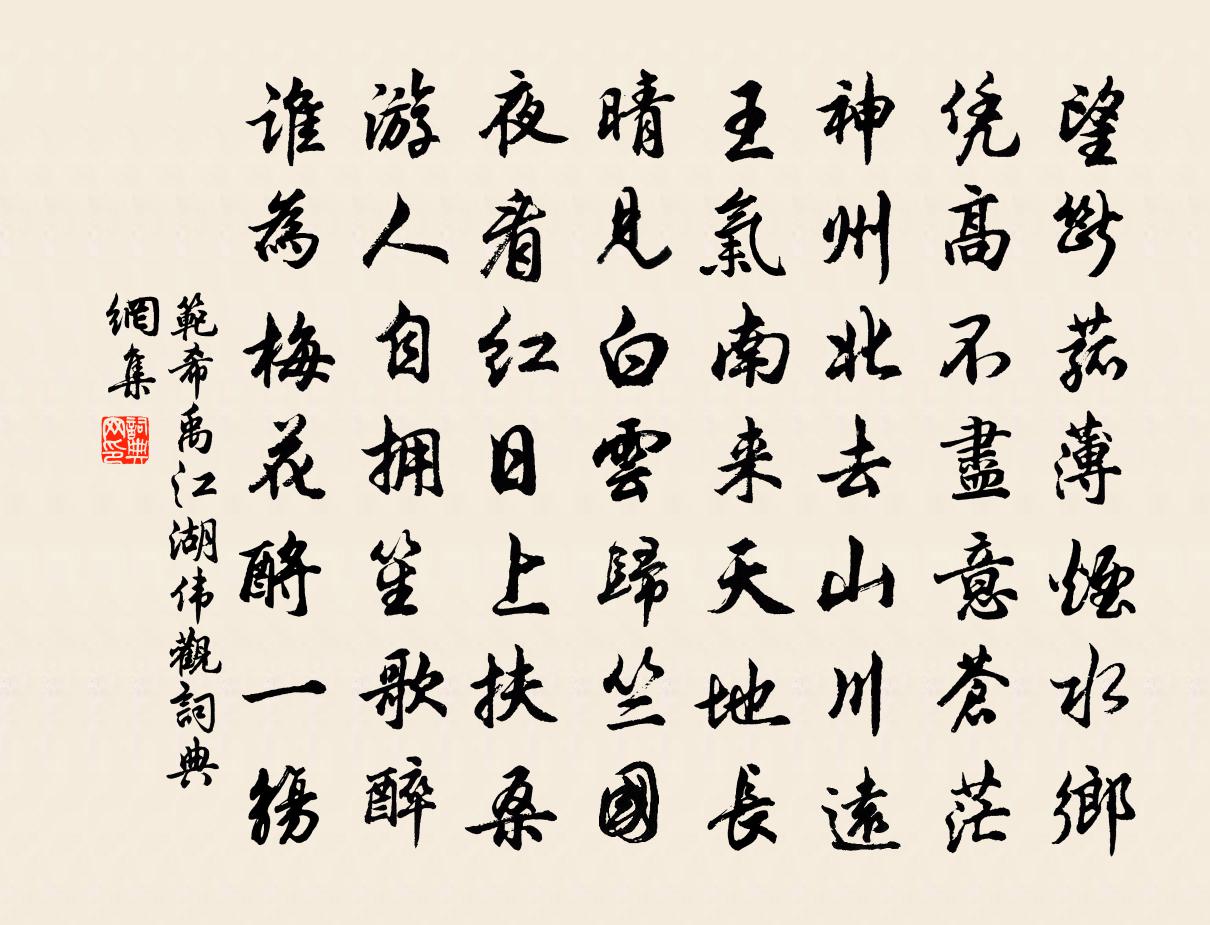 望斷菰薄煙水鄉
凭高不盡意蒼茫
神州北去山川遠
王氣南来天地長
晴見白雲歸竺國
夜看紅日上扶桑
游人自拥笙歌醉
誰為梅花酹一觴
範希禹江湖伟觀詞典
網集
詞典網印